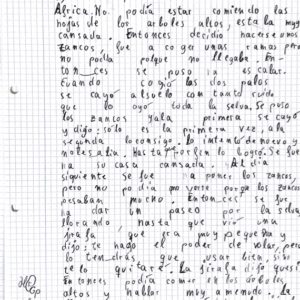 Africa. No podía estar comiendo las
hojas de los arboles altos, estaba muy
cansada. Entonces decidio hacerse unos
Zancos, fue a coger unas ramas pero
no podía porque no llegaba. En-
ton ces se poso a es calar.
cuando cogio los dos palos
se cayó al suelo con tanto ruido
que lo oyó toda la selva. Se poso
los zancos y a la primera se cayó
y dijo: sólo es la primera vez, a la
segunda lo consigo. Lo intentó de nuevo y
no les alia. Hasta por la noche. Se fue
na su casa cansada. Al día
siguiente se fue a poner los zancos,
pero no podia mo verse porque los zancos
pesaban mucho. Enton ces se fue
a dar un paseo por la selva
llorando, hasta que vió una
jirafa que era muy pequeña y
dijo: te hago el poder de volar, pero
lo ten drás que usar bien, si no
te lo quitare. La jirafa dijo que si
Entonces podía comer en los arboles
altos y hablar muy a menudo. La